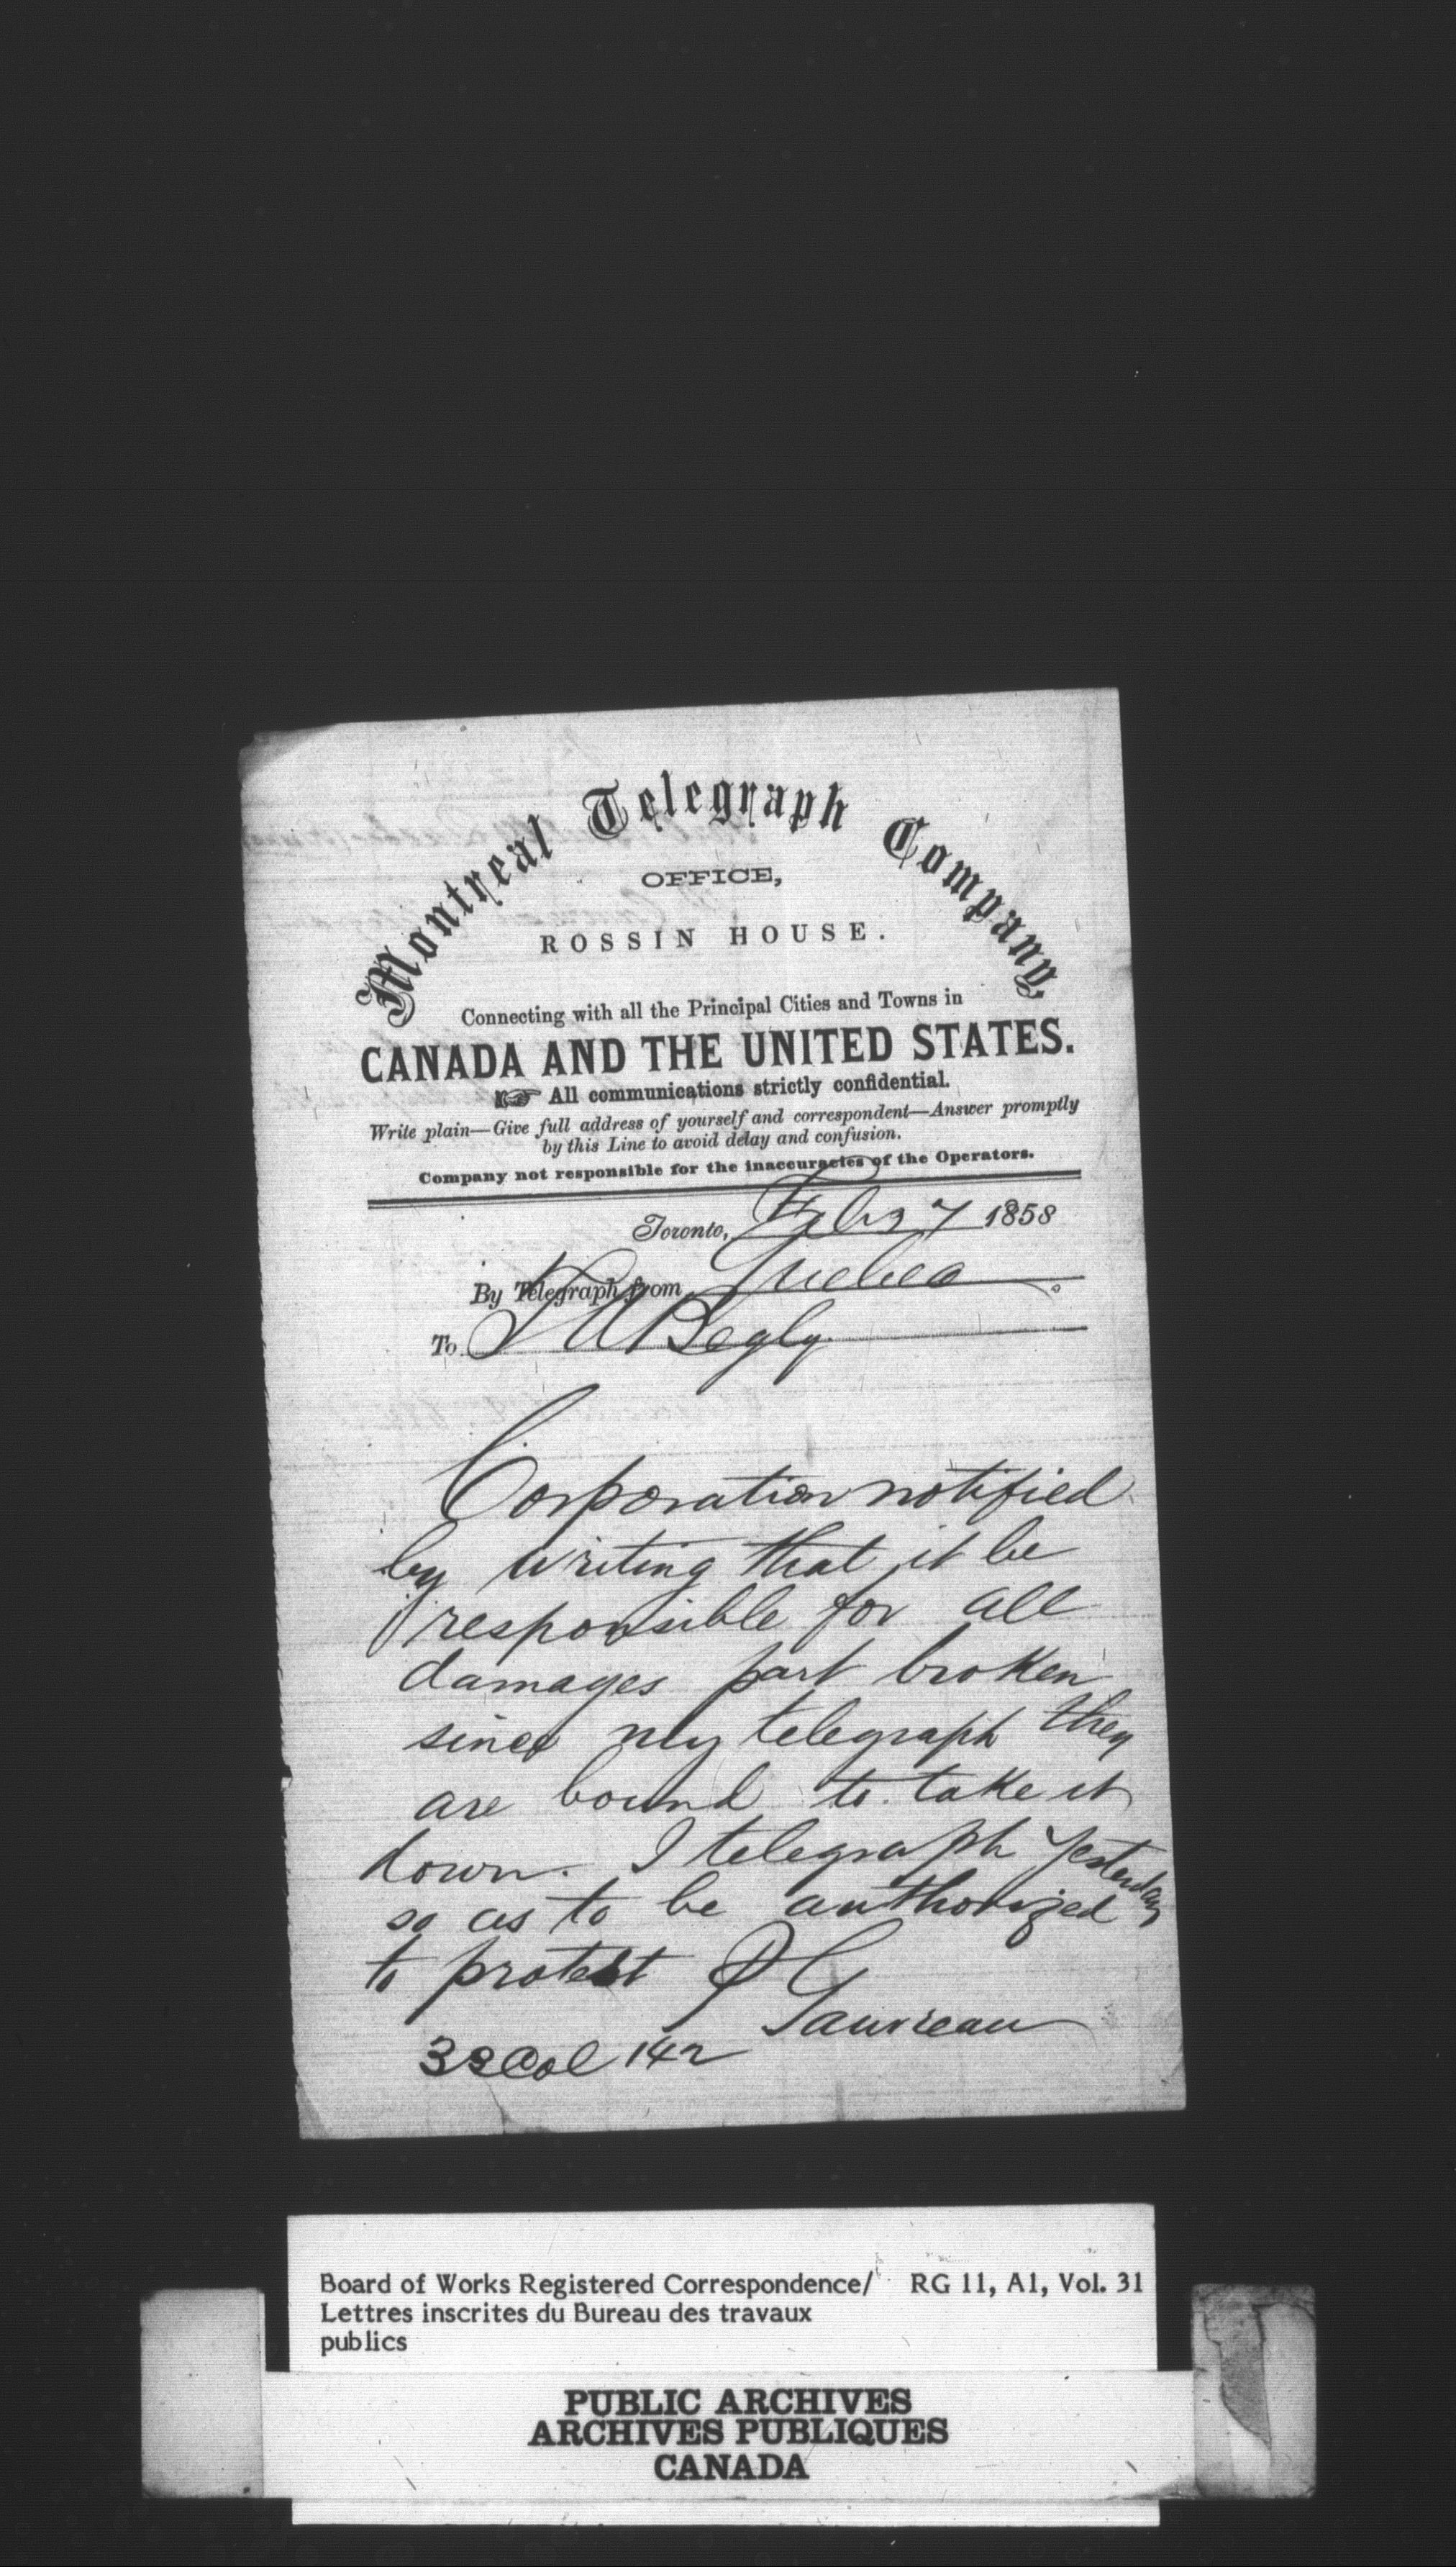 Montreal Telegraph Company
OFFICE,
ROSSIN HOUSE.
Connecting with all the Principal Cities and Towns in
CANADA AND THE UNITED STATES.
All communications strictly confidential.
Write plain—Give full address of yourself and correspondent—Answer promptly
by this Line to avoid delay and confusion.
Company not responsible for the inaccuracies of the Operators.
Toronto, 7 1858
By Telegraph from Quebec
To Begly
Corporation notified
by writing that it be
responsible for all
damages part broken
since my telegraph they
are bound to take it
down. I telegraph yesterday
so as to be authorized
to protest P
Gauvreau
Col 142
Board of Works Registered Correspondence/ RG 11, A1, Vol. 31
Lettres inscrites du Bureau des travaux
publics
PUBLIC ARCHIVES
ARCHIVES PUBLIQUES
CANADA